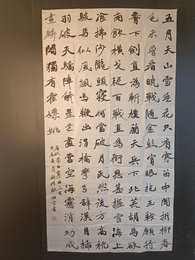 五月天山雪無花只有寒笛中聞折柳春
色未曾看曉戰隨金鼓宵眠抱玉鞍願將
腰下劍直為斬樓蘭天兵下北荒胡馬欲
南飲橫戈從百戰直為銜恩甚握雪海上
餐拂沙隴頭寢何當破月氏然後方高枕
駿馬似風飆鳴鞭出渭橋彎弓辭漢月插
羽破天驕陣解星芒盡營空海霧消功成
畫麟閣獨有霍嫖姚